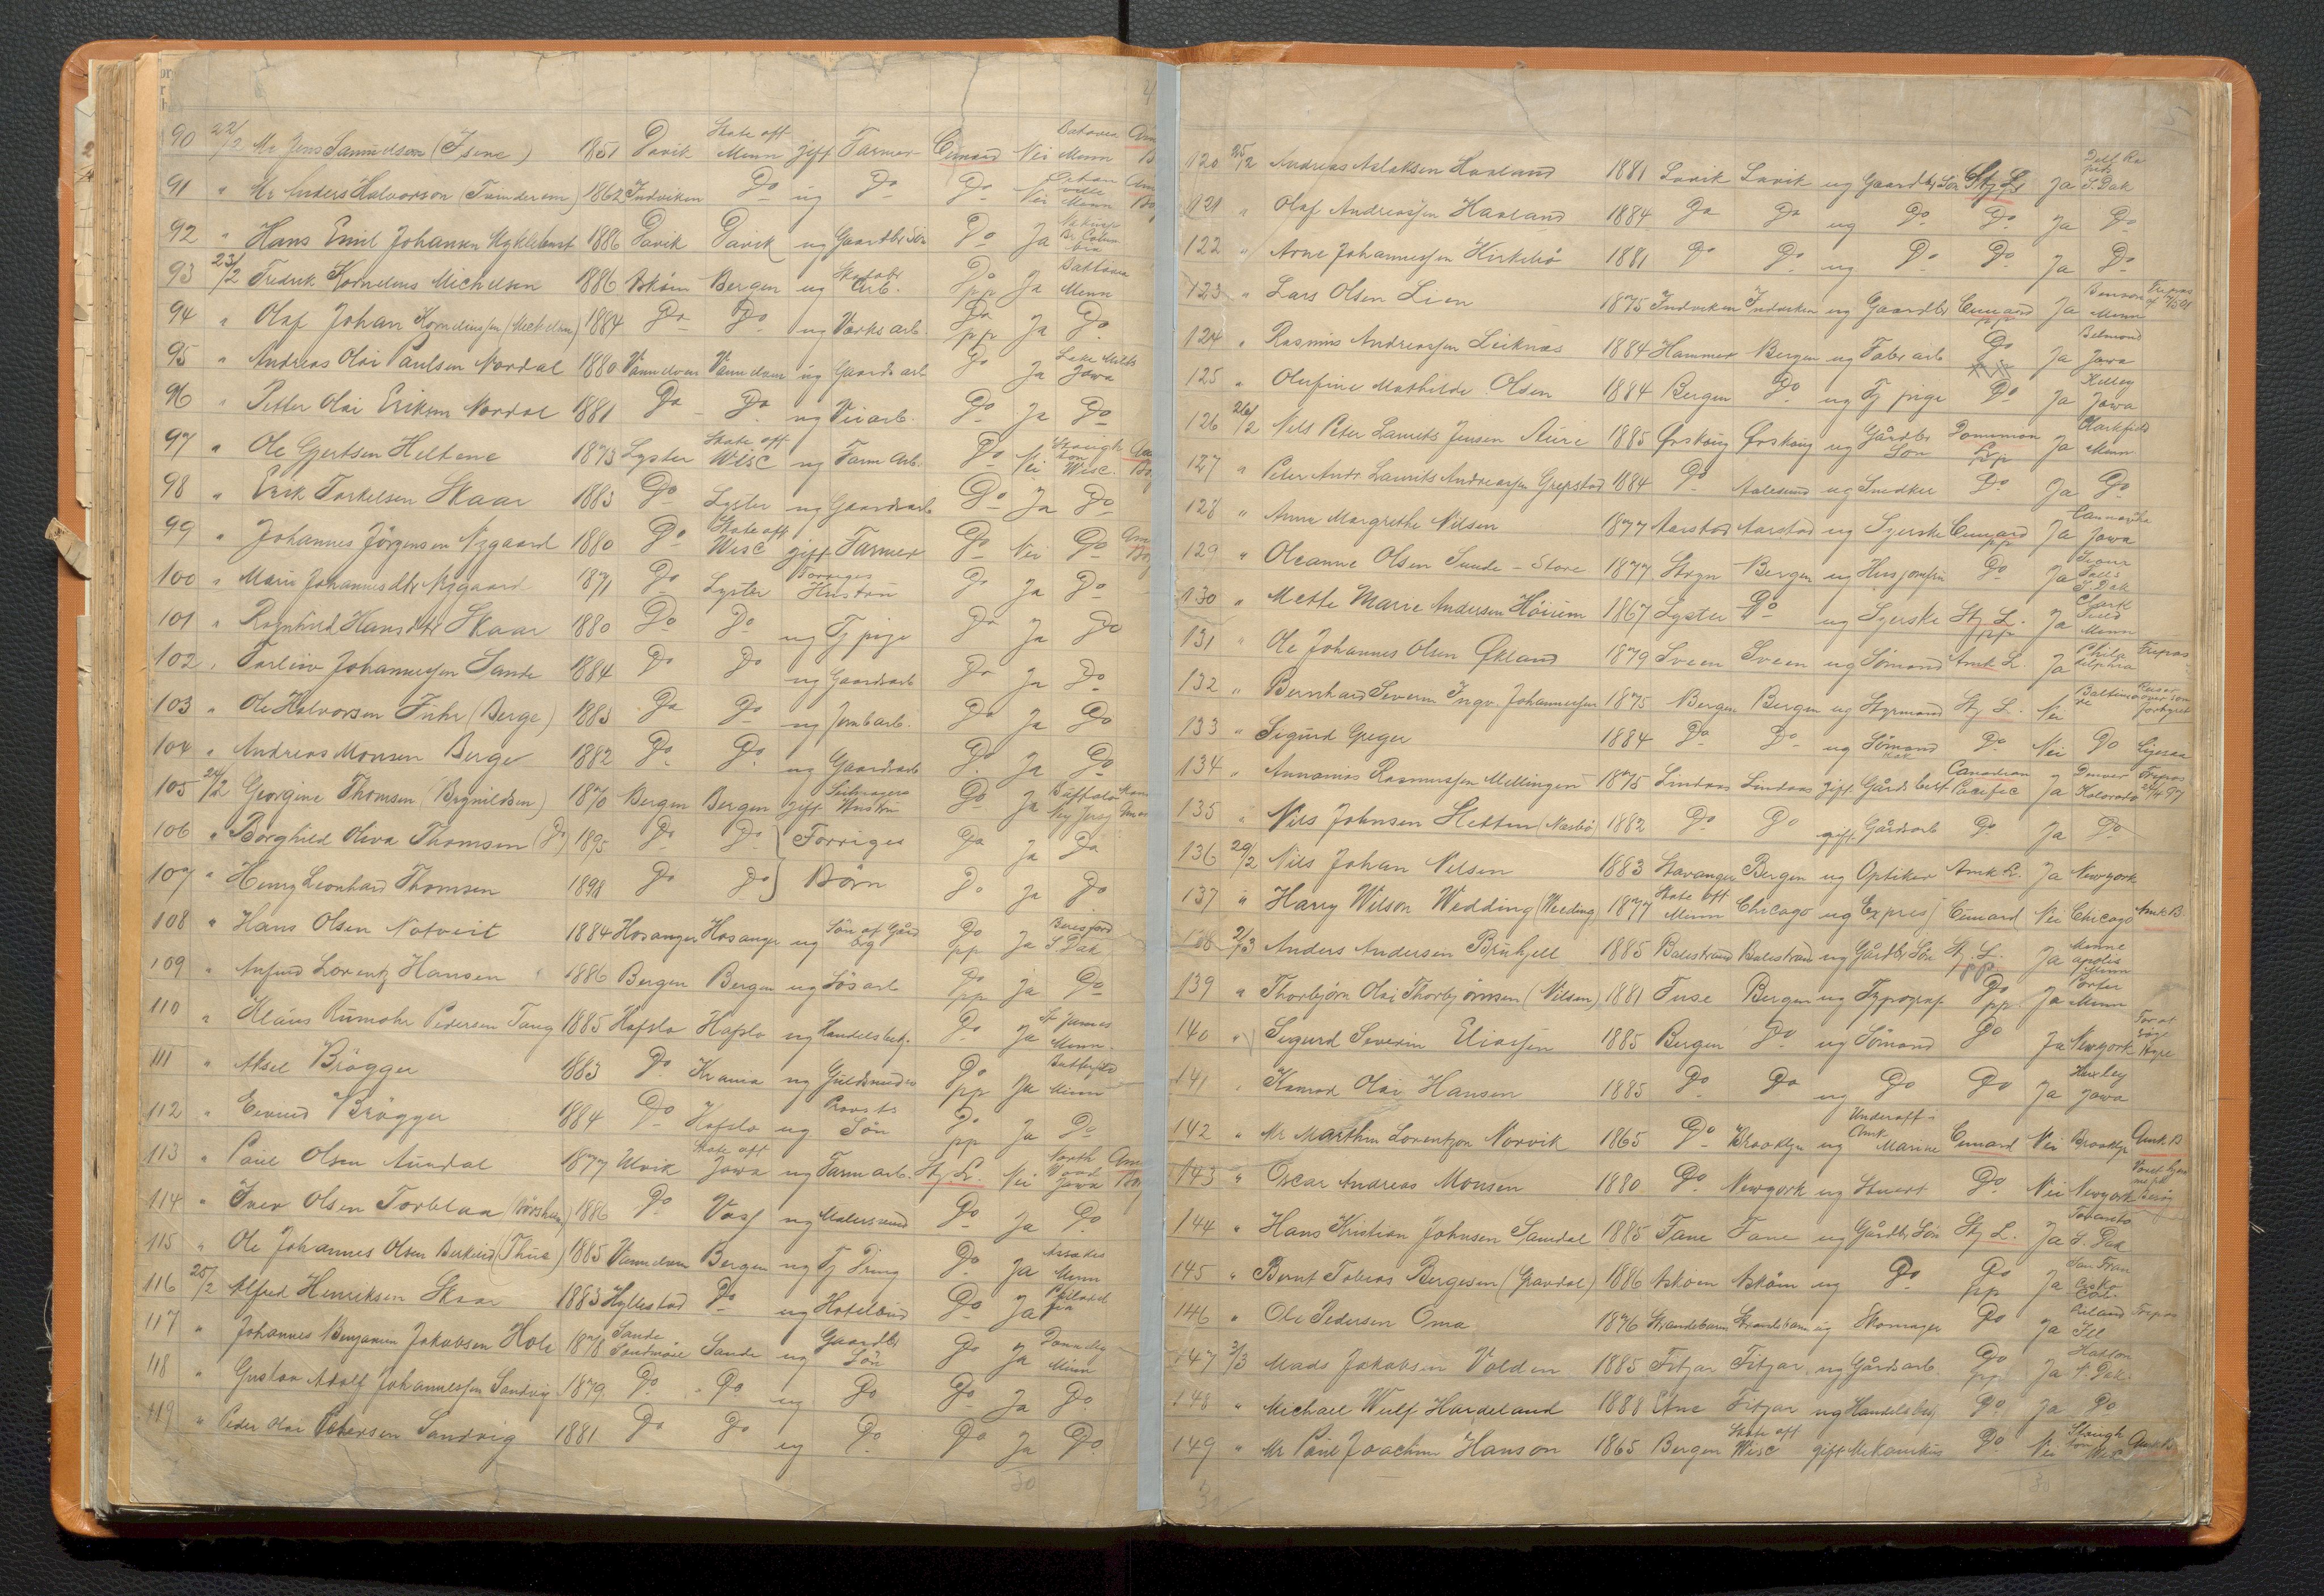 90 22/2 Mr Jens Samuelson (Isene) 1851 Davik State off Minn gift Farmer Cunard Nei Batavia Minn
91 " Mr Anders Halvorson (Tvinderem) 1862 Indviken Do ug Do Do Nei ville Minn
92 " Hans Emil Johansen Myklebust 1886 Davik Davik ug Gaardbr Søn Do Ja Br. Colum bia
93 23/2 Fredrik Kornelius Michelsen 1886 Askøen Bergen ug Arb. Do pp Ja Minn
94 " Olaf Johan Kornelinssen (Mickelsen) 1884 Do Do ug Værks arb. Do pp Ja Do
95 " Andreas Olai Paulsen Nordal 1880 Vanndven Vanndven ug Gaards arb Do Ja Lake Mills Jowa
96 " Petter Olai Eriksen Nordal 1881 Do Do ug Veiarb. Do Ja Do
97 " Ole Gjertsen Heltene 1873 Lyster State off Wisc ug Farm Arb. Do Nei Stough ton Wisc.
98 " Erik Torkelsen Skaar 1883 Do Lyster ug Gaardsarb Do Ja Do
99 " Johannes Jørgensen Nygaard 1880 Do State off Wisc gift Farmer Do Nei Do
100 " Marie Johannesdtr Nygaard 1871 Do Lyster Forriges Hustru Do Ja Do
101 " Ragnhild Hansdtr Skaar 1880 Do Do ug Tj pige Do Ja Do
102 " Torleiv Johannessen Sande 1884 Do Do ug Gaardsarb Do Ja Do
103 " Ole Halvorsen Fuhr (Berge) 1883 Do Do ug Jernbarb. Do Ja Do
104 " Andreas Monsen Berge 1882 Do Do ug Gaardsarb Do Ja Do
105 24/2 Georgine Thomsen (Brynildsen) 1870 Bergen Bergen gift Seilmagers Hustru Do Ja Buffalo
106 " Borghild Oliva Thomsen (Do) 1895 Do Do } Forriges Do Ja Do
107 " Henry Leonhard Thomsen 1898 Do Do } Børn Do Ja Do
108 " Hans Olsen Notveit 1884 Hosanger Hosanger ug Søn af Gård Do pp Ja Beresford S. Dak
109 " Anfind Lorentz Hansen 1886 Bergen Bergen ug Løsarb Do pp Ja Do
110 " Klaus Rumohr Pedersen Tang 1885 Hafslo Hafslo ug Handelsbetj. Do Ja St James Minn.
111 " Aksel Brögger 1883 Do Krania ug Guldsmed Do pp Ja Minn
112 " Eivind Brögger 1884 Do Hafslo ug Provsts Søn Do pp Ja Do
113 " Paul Olsen Aundal 1877 Ulvik State off Jowa ug Farm arb. Stj. L. Nei North Wood Jowa
114 " Iver Olsen Torblaa 1886 Do Voss ug Malersvend Do Ja Do
115 " Ole Johannes Olsen Birkeid (Thue) 1885 Vanndven Bergen ug Tj Dreng Do Ja Minn
116 25/2 Alfred Henriksen Skaar 1883 Hyllestad Do ug Hotelbud Do Ja Philadel fia
117 " Johannes Benjamin Jakobsen Hole 1878 Sande Søndmøre Sande ug Gaardbr Søn Do Ja Minn
118 " Gustav Adolf Johannessen Sandvig 1879 Do Do ug Do Do Ja Do
119 " Peder Olai Petersen Sandvig 1881 Do Do ug Do Do Ja Do
30
120 25/2 Andreas Aslaksen Haaland 1881 Lavik Lavik ug Gaardbr Søn Stj L Ja Dell Ra pids S. Dak
121 " Olaf Andreassen Haaland 1884 Do Do ug Do Do Ja Do
122 " Arne Johannessen Kirkebø 1881 Do Do ug Do Do Ja Do
123 " Lars Olsen Lien 1875 Indviken Indviken ug Gaardbr Cunard pp Ja Benson Minn Fripas
124 " Rasmus Andreassen Leiknes 1884 Hammer Bergen ug Fabr arb Do Ja Belmond Jowa
125 " Olufine Mathilde Olsen 1884 Bergen Do ug Tj pige Do Ja Kelley Jowa
126 26/2 Nils Peter Laurits Jensen Aure 1885 Ørskoug Ørskoug ug Gårdbr Søn Dominion pp Ja Clarkfield Minn
127 " Peter Andr. Laurits Andreassen Grepstad 1884 Do Aalesund ug Snedker Do Ja Do
128 " Anna Margrethe Nilsen 1877 Aarstad Aarstad ug Syerske Cunard pp Ja Jowa
129 " Oleanne Olsen Sunde-Store 1877 Stryn Bergen ug Husjomfru Do Ja Falls S. Dak
130 " Mette Marie Andersen Høium 1867 Lyster Do ug Syerske Stj L. pp Ja Clark field Minn
131 " Ole Johannes Olsen Økland 1879 Sveen Sveen ug Sømand Amk L. Ja Phila delphia Fripas
132 " Bernhard Severin Ingv. Johannessen 1875 Bergen Bergen ug Styrmand Stj L. Nei Baltimo re Reiser over som forhyret
133 " Sigurd Greger 1884 Do Do ug Sømand Do Nei Do
134 " Annanias Rasmussen Mellingen 1875 Lindaas Lindaas gift Gårdbest Canadian Pacific Ja Denver Kolorado Fripas
135 " Nils Johnsen Hetten 1882 Do Do gift Gårdsarb Do Ja Do
136 29/2 Nils Johan Nilsen 1883 Stavanger Bergen ug Optiker Amk L. Ja Newyork
137 " Harry Wilson Wedding (Weeding) 1877 State off Minn Chicago ug Expres Cunard Nei Chicago Amk B.
138 2/3 Anders Andersen Bruhjell 1885 Balestrand Balestrand ug Gårdbr Søn Stj. L. pp Ja Minne apolis Minn
139 " Thorbjørn Olai Thorbjørnsen (Nilsen) 1881 Fuse Bergen ug Typograf Do pp Ja Porter Minn
140 " Sigurd Severin Eliassen 1885 Bergen Do ug Sømand Do Ja Newyork For at søge Hyre
141 " Konrad Olai Hansen 1885 Do Do ug Do Do Ja Huxley Jowa
142 " Mr Marthin Lorentzon Norvik 1865 Do Brooklyn ug Underoff. Amk Marine Cunard Nei Brooklyn Amk B
143 " Oscar Andreas Monsen 1880 Do Newyork ug Stuert Do Nei Newyork
144 " Hans Kristian Johnsen Samdal 1885 Fane Fane ug Gårdbr Søn Stj L. Ja S. Dak
145 " Bernt Tobias Bergesen (Gravdal) 1886 Askøen Askøen ug Do Do pp Ja San Fran cisko Cal.
146 " Ole Pedersen Oma 1876 Strandebarm Strandebarm ug Skomager Do Ja Ill Fripas
147 3/3 Mads Jakobsen Volden 1885 Fitjar Fitjar ug Gårdsarb. Do pp Ja Hatton N. Dak.
148 " Michael Wulf Hardeland 1888 Etne Fitjar ug Handelsbetj. Do Ja Do
149 " Mr Paul Joachim Hanson 1865 Bergen State off Wisc gift Mekanikus Do Nei Stough ton Wisc Amk B
30
30